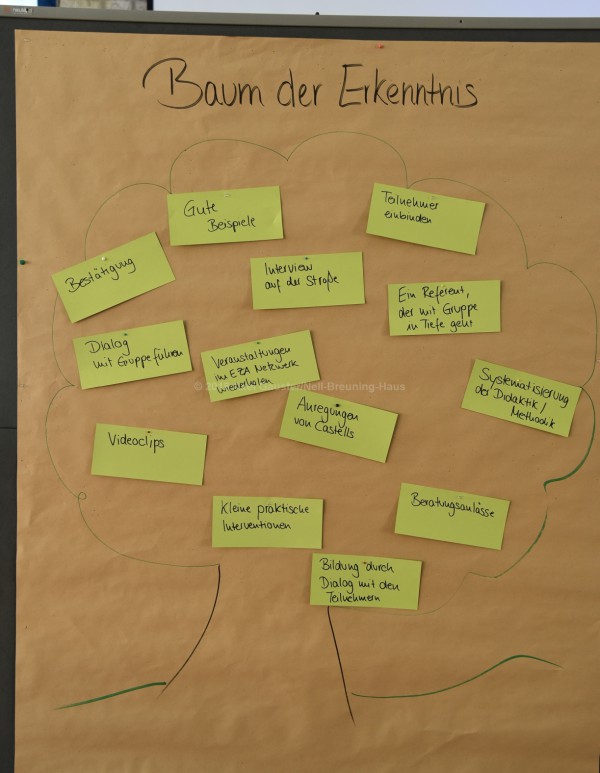 Baum der Erkenntnis
Gute
Beispiele
Teilnehmer
einbinden
Bestätigung
Interview
auf der Straße
Ein Referent,
der mit Gruppe
in Tiefe geht
Dialog
mit Gruppe führen
Veranstaltungen
im EZA Netzwerk
wiederholen
Systematisierung
der Didaktik /
Methodik
Anregungen
von Castells
Videoclips
Kleine praktische
Interventionen
Beratungsanlässe
Bildung durch
Dialog mit den
Teilnehmern
Nell-Breuning-Haus